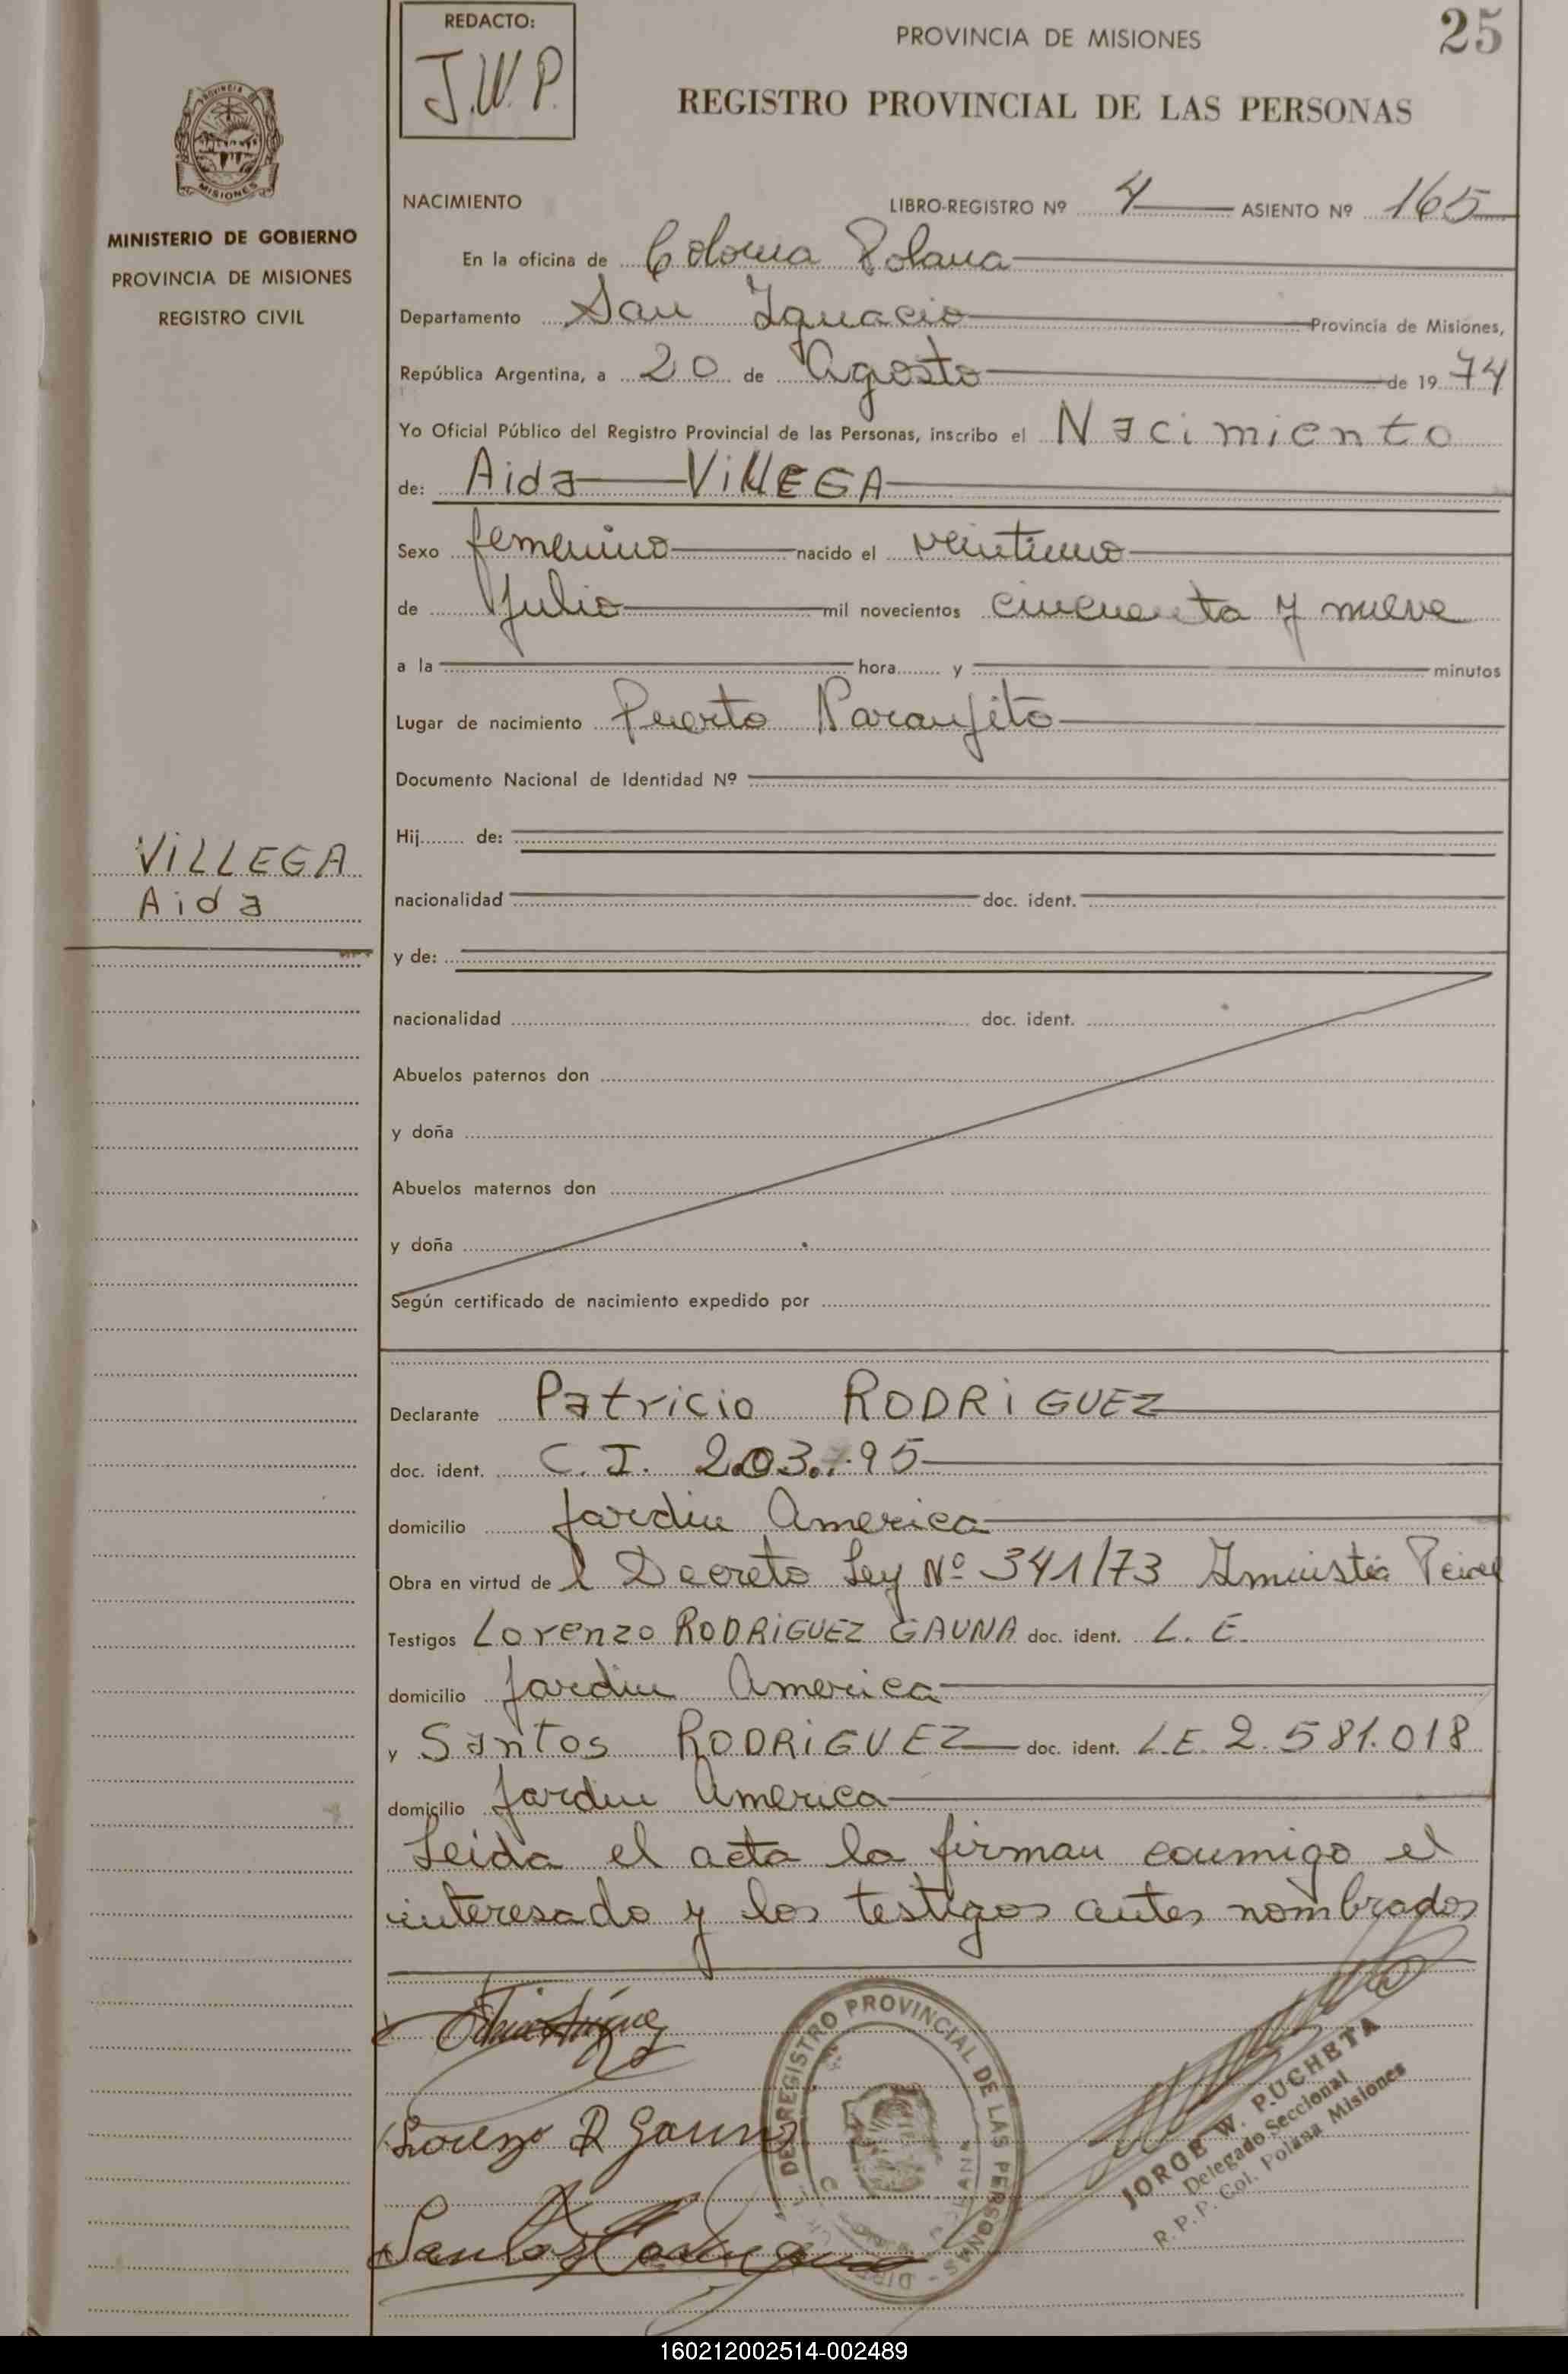 REDACTO:
J.W.P.
PROVINCIA DE MISIONES
25
REGISTRO PROVINCIAL DE LAS PERSONAS
MISIONES
MINISTERIO DE GOBIERNO
PROVINCIA DE MISIONES
REGISTRO CIVIL
NACIMIENTO LIBRO-REGISTRO Nº 4 ASIENTO Nº 165
En la oficina de Colonia Polana
Departamento San Ignacio Provincia de Misiones,
República Argentina, a 20 de Agosto de 1974
Yo Oficial Público del Registro Provincial de las Personas, inscribo el Nacimiento
de: Aida VillEGA
Sexo femenino nacido el veintiuno
de Julio mil novecientos cincuenta y nueve
a la hora y minutos
Lugar de nacimiento Puerto Naranjito
Documento Nacional de Identidad Nº
Hij de:
VILLEGA
Aida
nacionalidad doc. ident.
y de:
nacionalidad doc. ident.
Abuelos paternos don
y doña
Abuelos maternos don
y doña
Según certificado de nacimiento expedido por
Declarante Patricio RODRIGUEZ
doc. ident. C.I.
domicilio Jardin America
Obra en virtud del Decreto Ley Nº 341/73
Testigos Lorenzo RODRIGUEZ GAUNA doc. ident. L.E.
domicilio Jardin America
y Santos RODRIGUEZ doc. ident. L.E. 2.581.018
domicilio Jardin America
Leida el acta la firman conmigo el
interesado y los testigos antes nombrados
Lorenzo R Gauna
REGISTRO PROVINCIAL DE LAS PERSONAS
JORGE W. PUCHETA
Delegado Seccional
R.P.P. Col. Polana Misiones
160212002514-002489